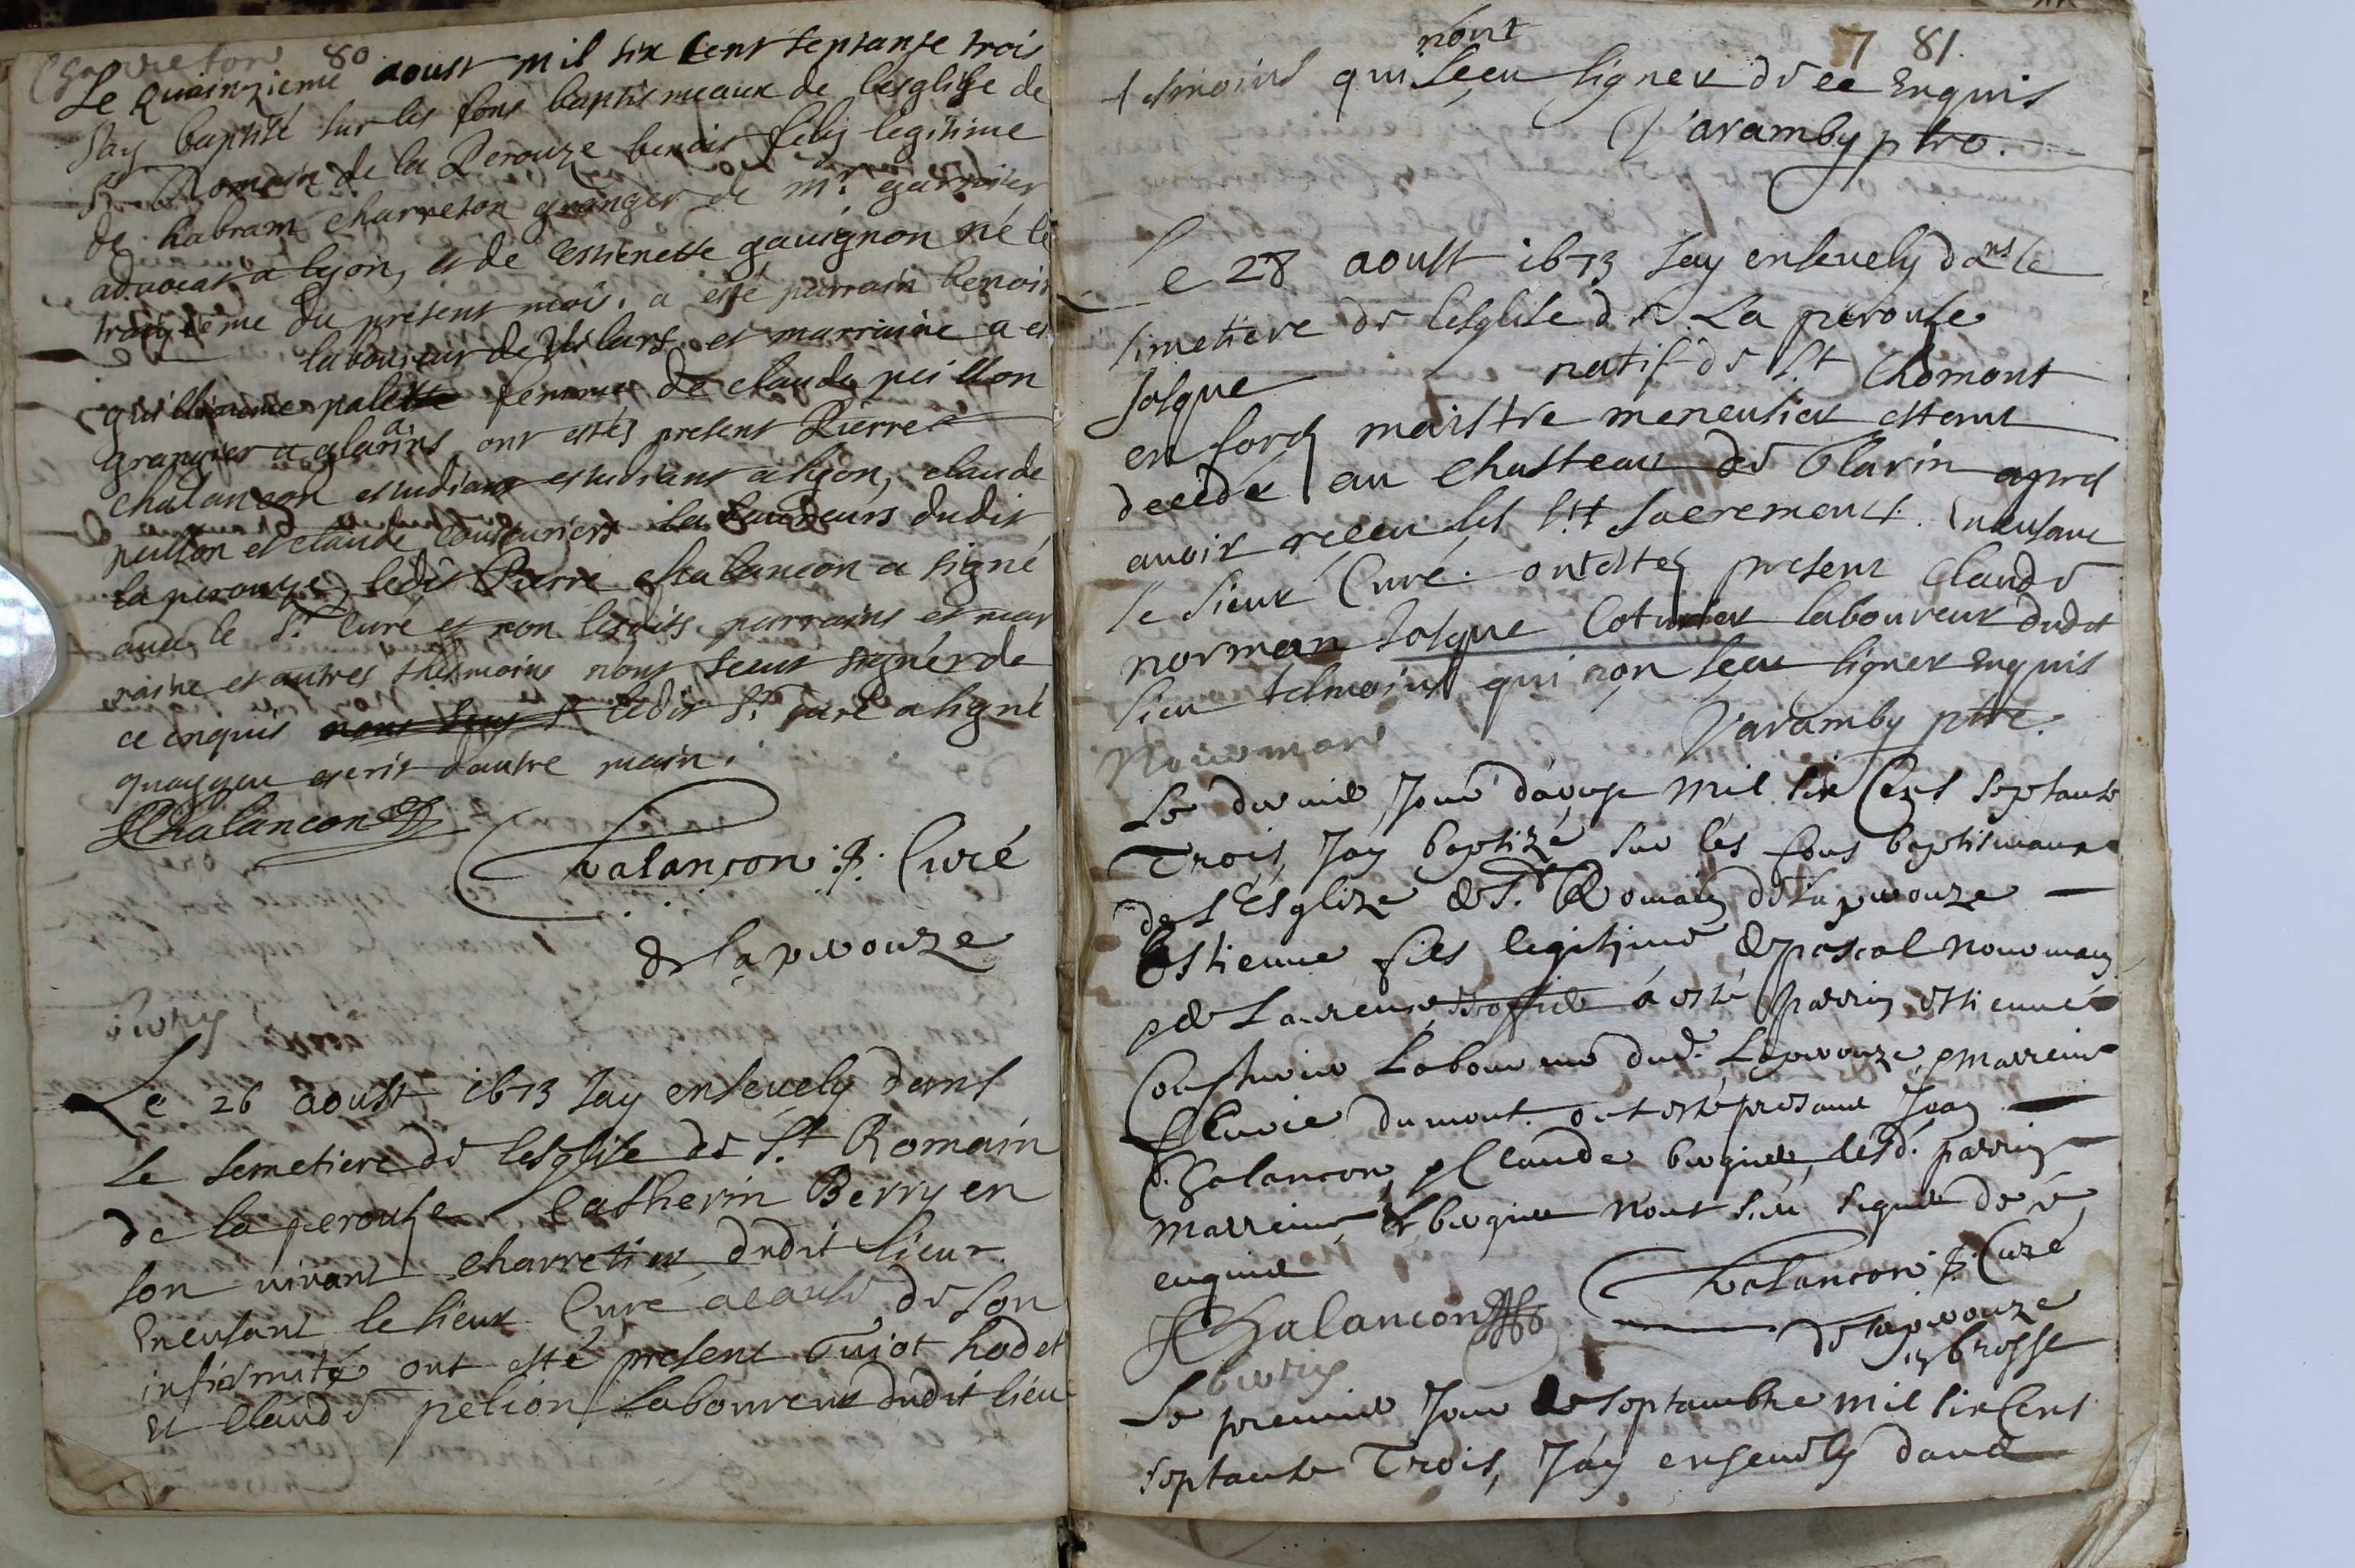 Charreton 80
Le quainzieme aoust mil six cent septante trois
Jay baptisé sur les fons baptismeaux de lesglise de
St Romain de la Perouze benoit fils legitime
de habram charreton granger de mr. garnier
advocat a lyon, et de estienette gauignon né le
traizieme du present mois. a esté parrain benoit
laboureur de vilars et marraine a es
guillieaume palette femme de claude peillon
grangier a glarins ont estés present Pierre
chalancon estudiant estudiant a lyon, claude
peillon et claude cousturiers laboureurs dudit
la perouze, ledit Pierre chalancon a signé
auec le Sr. curé et non lesdits parrains et mar
raine et autres thesmoins nont sceut signér de
ce enquis nous ledit Sr. curé a signé
quoyque escrit dautre main.
Chalancon
Chalançon p. Curé
de laperouze
berry
Le 26 aoust 1673 Jay enseuely dans
le semetiere de lesglise de St. Romain
de la perouse Catherin Berry en
son vivant charretier dudit lieu
En eusant le sieur Curé a cause de son
infirmité ont esté present Guiot hodet
et Claude pelion laboureur dudit lieu
7 81.
nont
tesmoins qui sceu signer de ce Enquis
Varamby ptre.
Le 28 aoust 1673 Jay enseuely dans le
simetiere de lesglise de La perouse
Jasque natif de St Chomont
en forez maistre meneusier estant
decedé au chasteau de Glarin apres
auoir receu les Sts Sacrements. En eusant
le sieur Curé. ont estez present Claude
norman Jasque Coturier laboureur dudit
lieu tesmoins qui non sceu signer Enquis
Varamby ptre.
Nouvman
Le dernier Jour daoust mil six Cens septante
Trois, Jay baptizé sur les fons baptismaux
de l'Esglize de St. Romain de laperouze
Estienne fils legitime de pascal nouvman
et de Laurence a esté parrin estienne
Cousturier Laboureur dud. Laperouze, et marreine
fleurie dumont. ont esté presant Jean
Chalancon, et Claude berguier, lesd. parrin
marreine et berguier nont sceu signer de ce
enquis
Chalancon
Chalancon p. Curé
de laperouze
brosse
berry
Le premier Jour de septambre mil six Cens
septante Trois, Jay enseuely dans